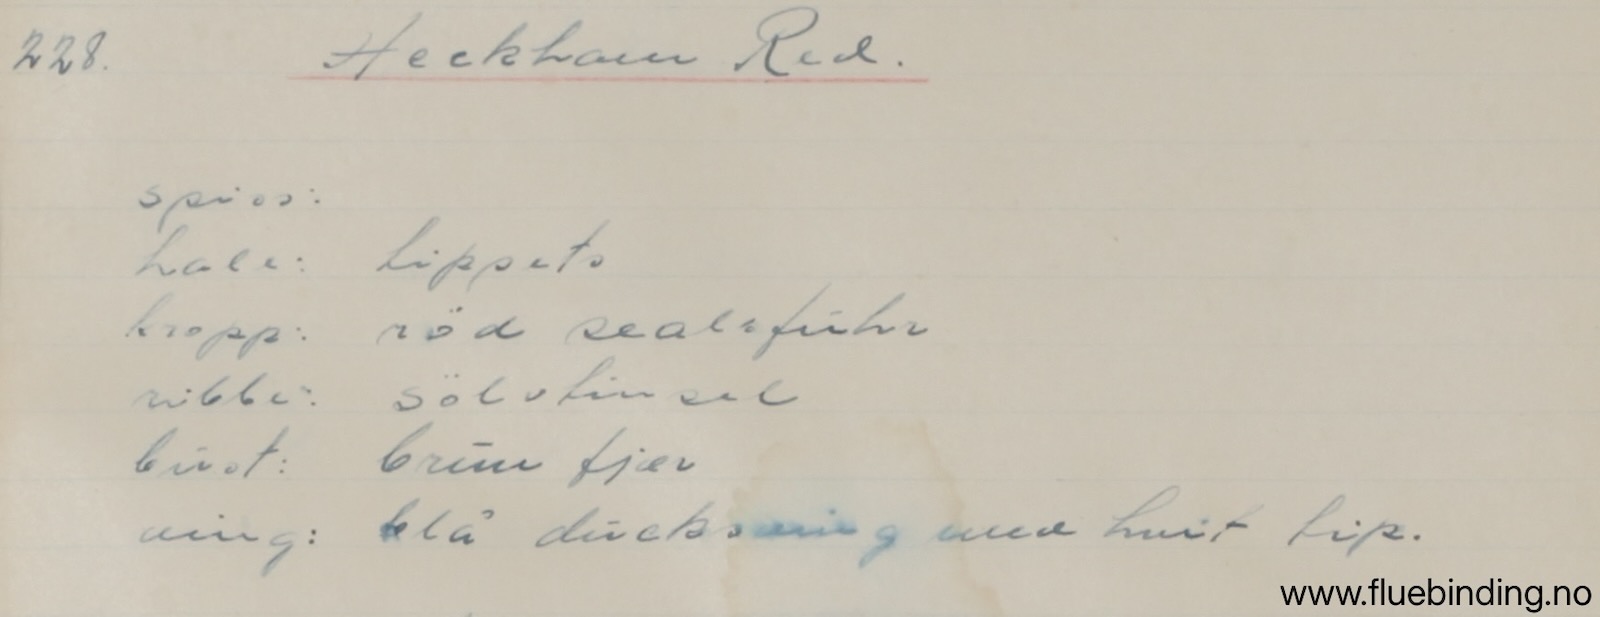 228. Heckham Red.
spiss:
hale: tippets
kropp: röd sealsfuhr
ribbe: sölvtinsel
bust: brun fjær
ving: blå duckswing med hvit tip.
www.fluebinding.no